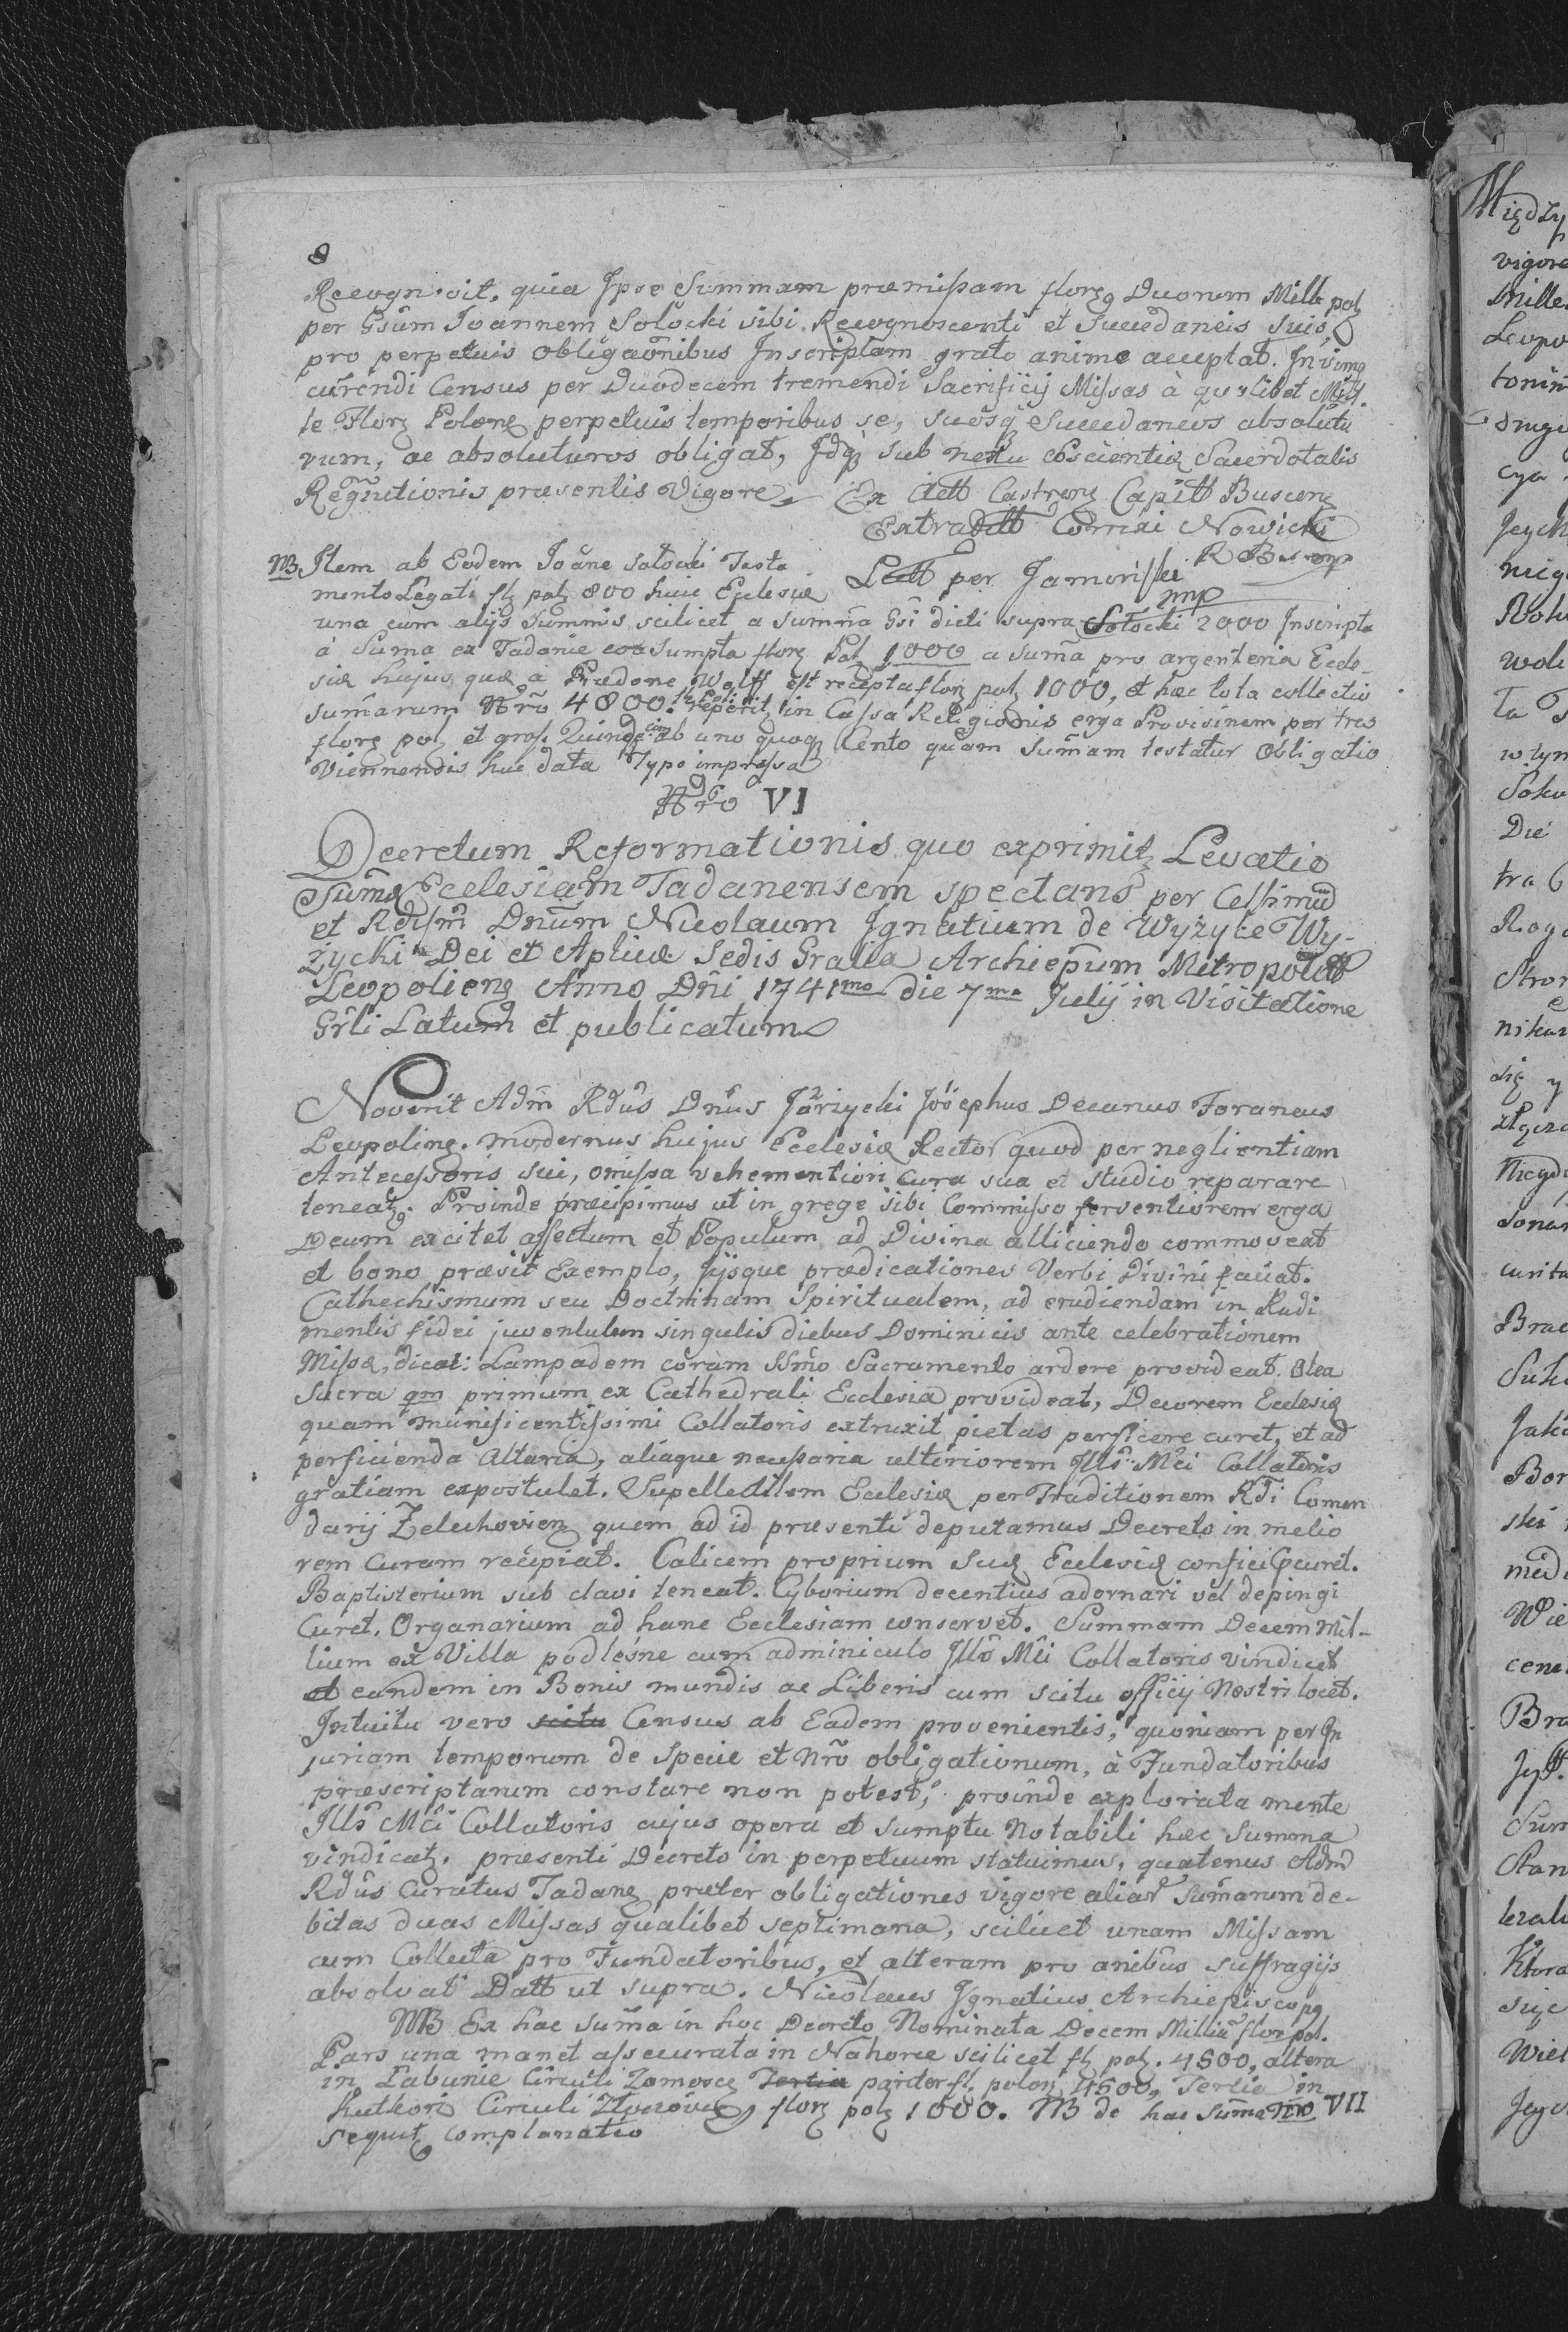 8
Recognovit, quia Ipse Summam præmissam florę Duorum Mille polę
per Gsum Joannem Sołocki sibi Recognoscenti et Succedaneis suis,
pro perpetuis obligaõnibus Inscriptam grato animo acceptat. In vim
currendi Census per Duodecem tremendi Sacrificij Missas à quolibet Mil-
le Florę Polonę perpetuis temporibus se, suosq Succedaneos absolutu
rum, ac absoluturos obligat, Idq sub nexu Coscientiæ Sacerdotalis
Regñitionis præsentis Vigore. Ex Actt Castrenę Capitt Buscenę
Extradtt Correxi Nowicki
R B mp
NB Item ab Eodem Joãne Sołocki Testa
Lectt per Jamoriski
mp
mento Legati fl polę 800 huic Ecclesiæ
una cum alijs Summis scilicet a summa Gsi dicti supra Sołocki 2000 Inscripta
à Suma ex Tadanie sumpta florę Polę 1000 a sumã pro argenteria Eccle-
siæ hujus quæ a Prædone Wolff est recepta florę polę 1000, et hæc tota collectio
sumarum Nrõ 4800. fl Pol: reperit in Cassa Religionis erga Provisinem per tres
florę polę et gros. Quindecim ab uno quoq Cento quam Sumam testatur obligatio
Viennensis huc data Typo impressa
Nro VI
Decretum Reformationis quo exprimitę Levatio
Sumæ Ecclesiam Tadanensem spectans per Celssimũ
et Rdism Dnum Nicolaum Ignatium de Wyżyce Wy-
życki Dei et Aplicæ Sedis Gratia Archiepum Metropolitt
Leopolienę Anno Dñi 1741mo die 7ma Julij in Visitatione
Grli Latum et publicatum
Noverit Adm Rdus Dnus Jarzycki Josephus Decanus Foraneus
Leopolinę. modernus hujus Ecclesiæ Rector quod per neglientiam
Antecessoris sui, omissa vehementiori cura sua et studio reparare
teneatę. Proinde præcipimus ut in grege sibi Commisso ferventiorem erga
Deum excitet affectum et Populum ad Divina alliciendo commoveat
et bono præsit Exemplo, Ijsque prædicationes Verbi Divini faciat.
Cathechismum seu Doctrinam Spiritualem, ad erudiendam in Rudi
mentis fidei juventutem singulis diebus Dominicis ante celebrationem
Missæ, dicat: Lampadem coram SSmo Sacramento ardere provideat. Olea
Sacra qm primum ex Cathedrali Ecclesia provideat, Decorem Ecclesiæ
quam munificentissimi Collatoris extruxit pietas perficere curet, et ad
perficienda Altaria, aliaque necessaria ulteriorem Ills Mci Collatoris
gratiam expostulet. Supellectilem Ecclesiæ per Traditionem Rdi Comen
darij Zelechovienę quem ad id præsenti deputamus Decreto in melio
rem Curam recipiat. Calicem proprium Suæ Ecclesiæ confici curet.
Baptisterium sub clavi teneat. Cyborium decentius adornari vel depingi
Curet. Organarium ad hanc Ecclesiam conservet. Summam Decem Mil-
lium ex Villa podleśne cum adminiculo Ills Mci Collatoris vindicet
et eandem in Bonis mundis ac Liberis cum scitu officij Nostri locet.
Intuitu vero scitu Census ab Eadem provenientis, quoniam per In
juriam temporum de specie et Nrõ obligationum, à Fundatoribus
præscriptarum constare non potest, proinde explorata mente
Ills Mci Collatoris cujus opera et sumptu Notabili hæc Summa
vindicatę, præsenti Decreto in perpetuum statuimus, quatenus Admd
Rdus Curatus Tadanę præter obligationes vigore aliar Sumarum de-
bitas duas Missas qualibet septimana, scilicet unam Missam
cum Collecta pro Fundatoribus, et alteram pro anibus suffragijs
absolvat Datt ut supra. Nicolaus Ignatius Archiepiscopq
NB Ex hac Sumã in hoc Decreto Nominata Decem Milliũ flor pol.
Pars una manet assecurata in Nahorce scilicet fl polę. 4500, altera
in Łabunie Circuli Zamoscę Tertia pariter fl polonę 4500, Tertia in
hutkori Circuli florę polę 1000. NB de hac Suma Nro VII
sequitę complanatio